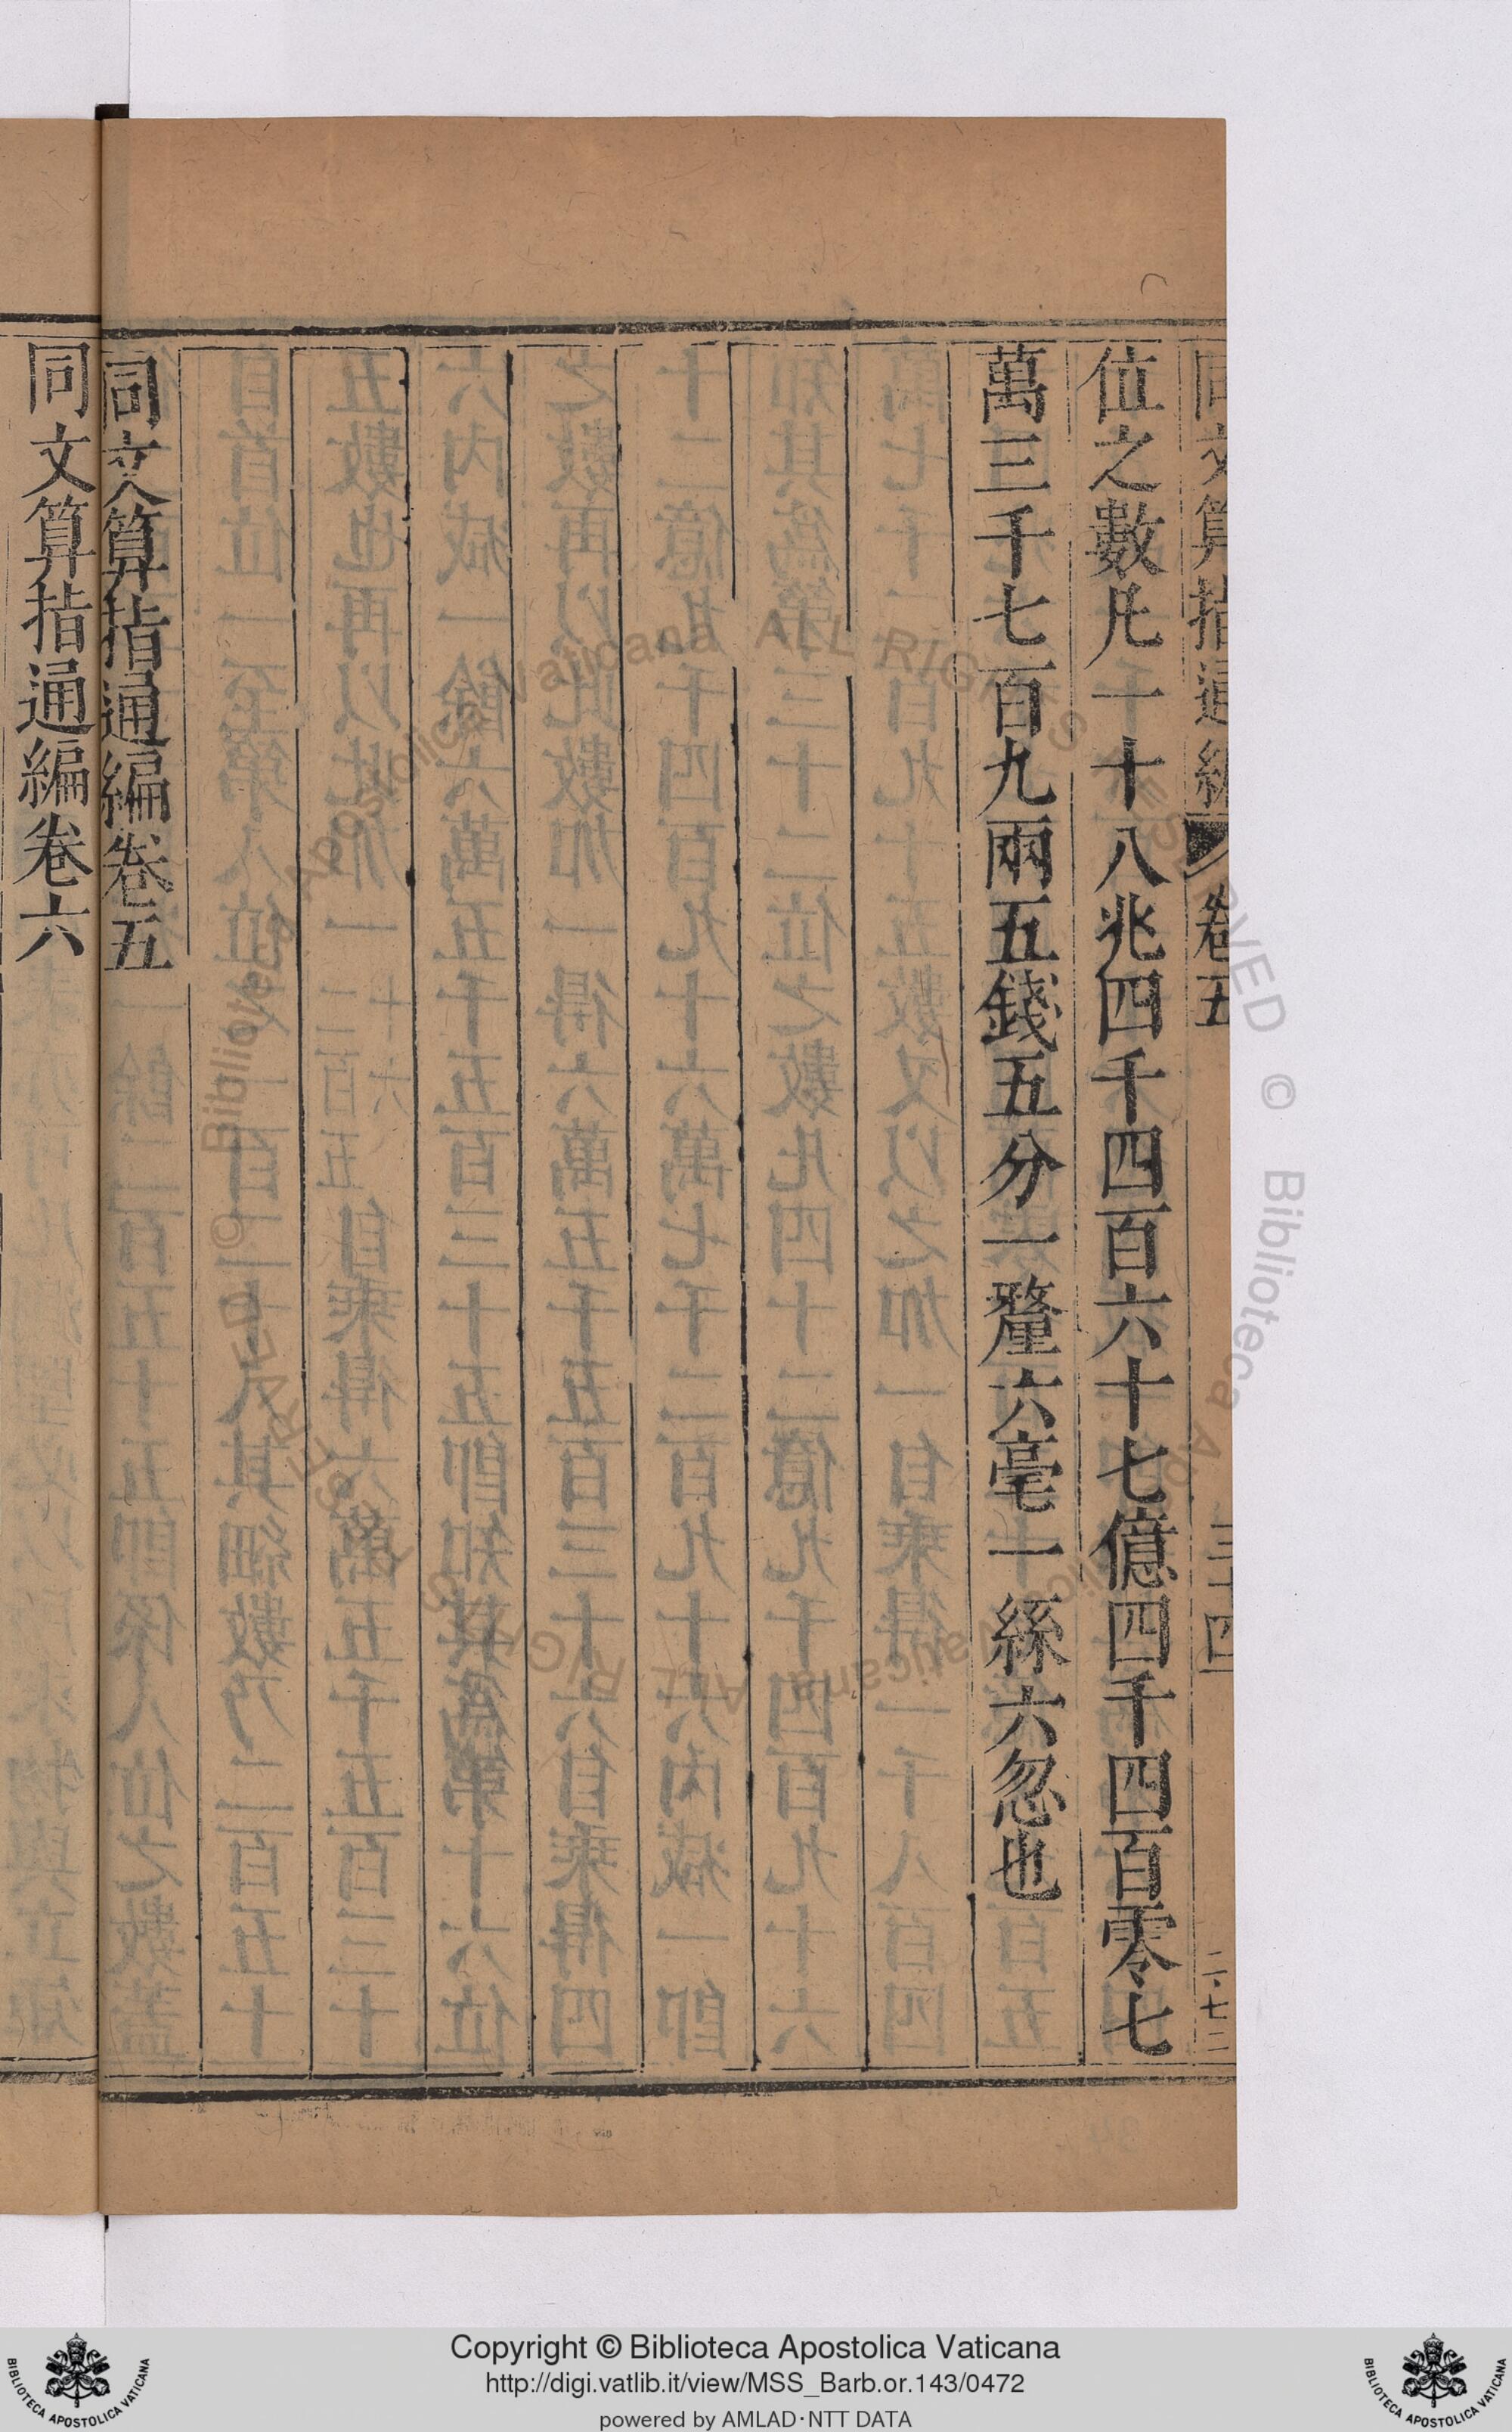 同文算指通編 卷五 三十四 二七二
位之數凡一十八兆四千四百六十七億四千四百零七
萬三千七百九兩五錢五分一釐六毫一絲六忽也
同文算指通編卷五
同文算指通編卷六
© Biblioteca Apostolica Vaticana ALL RIGHTS RESERVED © Biblioteca Apostolica Vaticana ALL RIGHTS RESERVED
Copyright © Biblioteca Apostolica Vaticana
http://digi.vatlib.it/view/MSS_Barb.or.143/0472
powered by AMLAD·NTT DATA
BIBLIOTECA APOSTOLICA VATICANA
BIBLIOTECA APOSTOLICA VATICANA